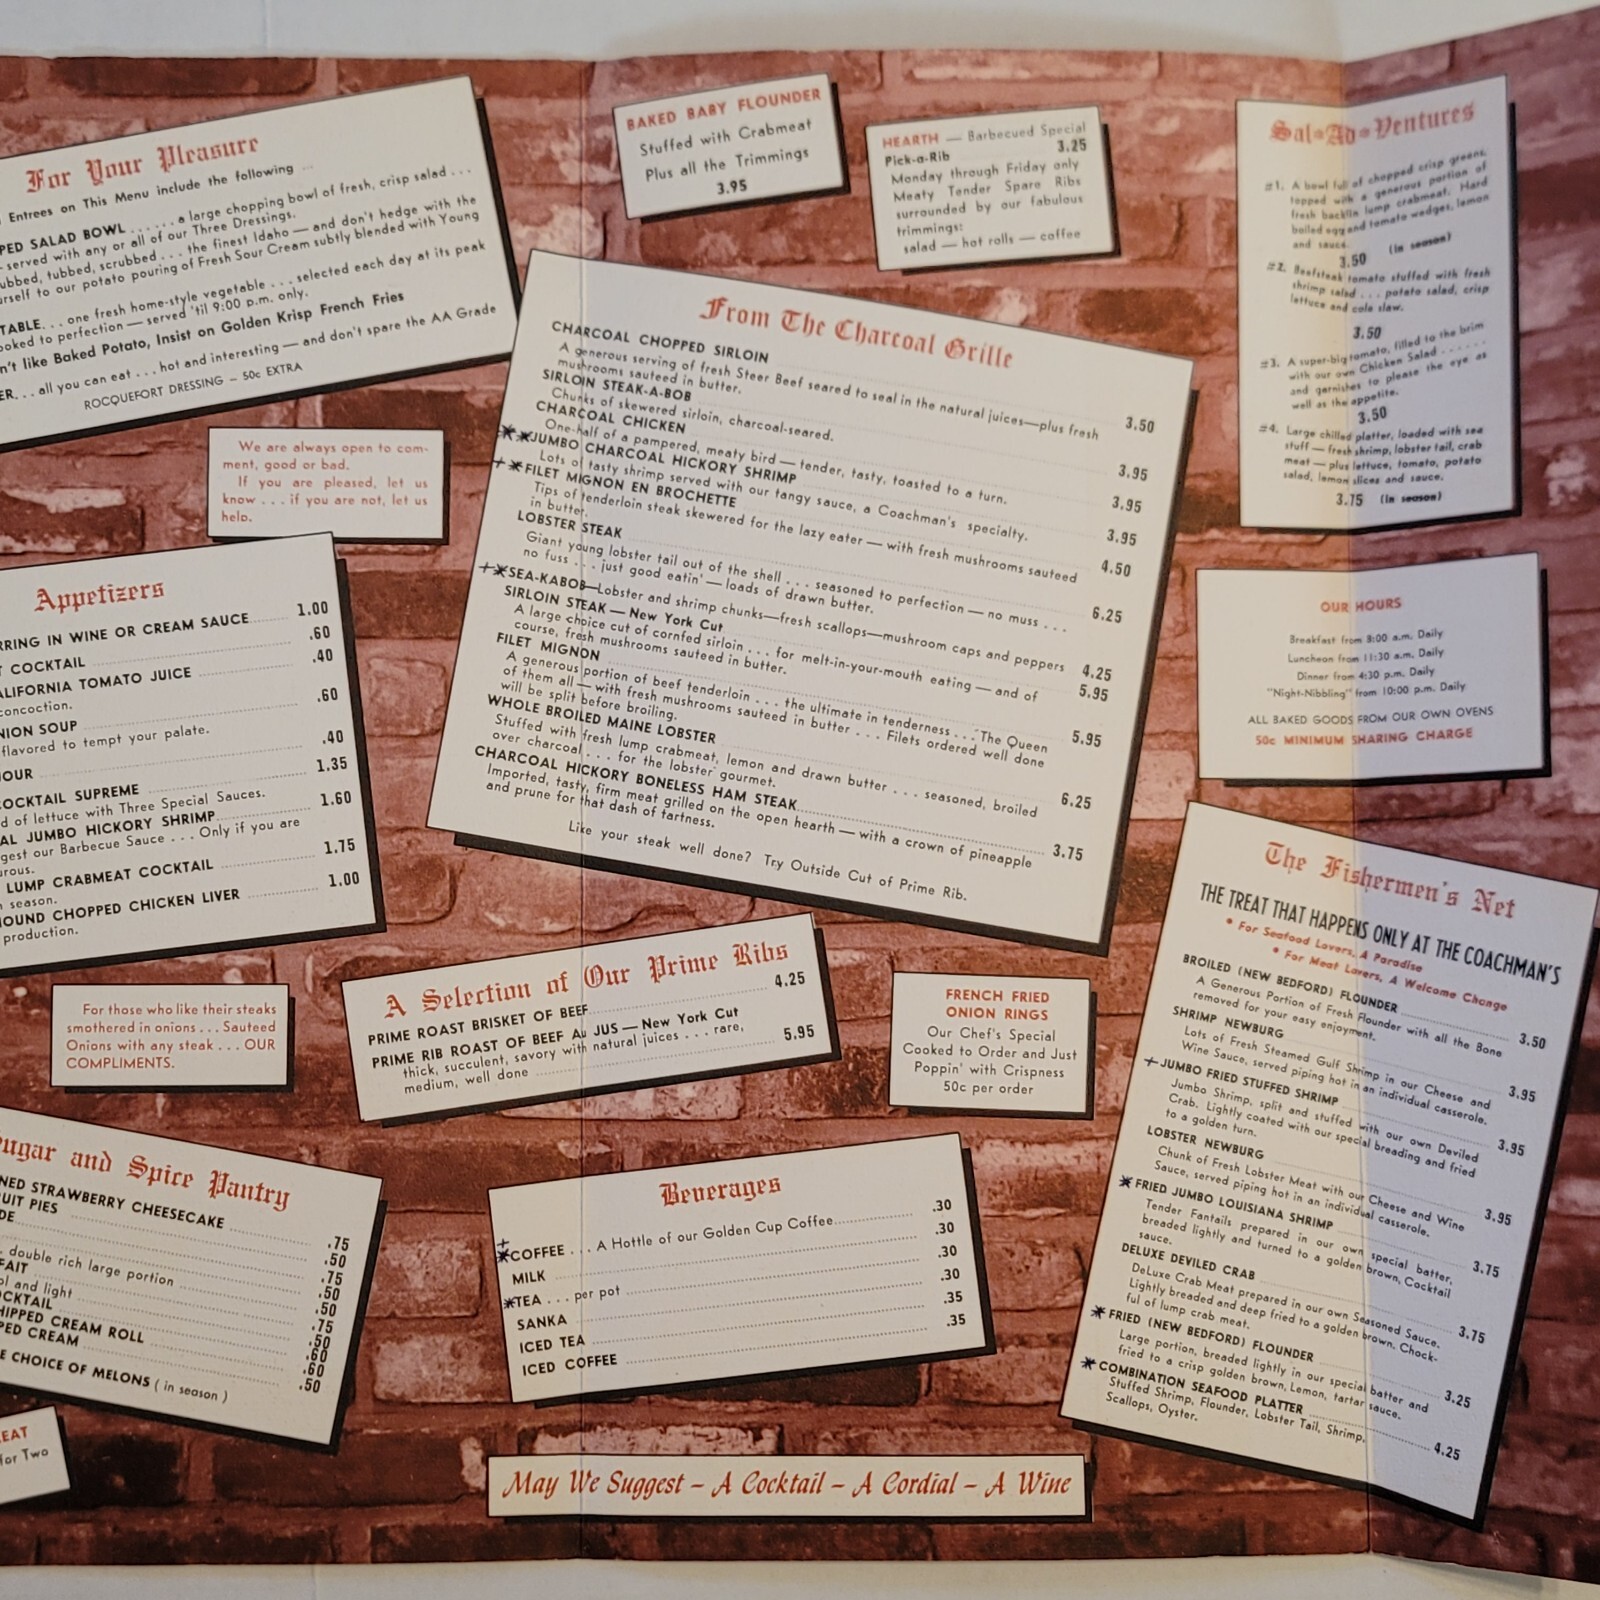 For Your Pleasure
Entrees on This Menu include the following ...
PED SALAD BOWL ...... a large chopping bowl of fresh, crisp salad ...
served with any or all of our Three Dressings.
ubbed, tubbed, scrubbed ... the finest Idaho — and don't hedge with the
urself to our potato pouring of Fresh Sour Cream subtly blended with Young
TABLE... one fresh home-style vegetable ... selected each day at its peak
ooked to perfection — served 'til 9:00 p.m. only.
n't like Baked Potato, Insist on Golden Krisp French Fries
ER... all you can eat ... hot and interesting — and don't spare the AA Grade
ROCQUEFORT DRESSING – 50c EXTRA
We are always open to com-
ment, good or bad.
If you are pleased, let us
know ... if you are not, let us
help.
Appetizers
RRING IN WINE OR CREAM SAUCE 1.00
T COCKTAIL .60
ALIFORNIA TOMATO JUICE .40
concoction.
NION SOUP .60
flavored to tempt your palate.
OUR .40
OCKTAIL SUPREME 1.35
d of lettuce with Three Special Sauces.
AL JUMBO HICKORY SHRIMP 1.60
gest our Barbecue Sauce ... Only if you are
urous.
LUMP CRABMEAT COCKTAIL 1.75
n season.
OUND CHOPPED CHICKEN LIVER 1.00
production.
For those who like their steaks
smothered in onions ... Sauteed
Onions with any steak ... OUR
COMPLIMENTS.
ugar and Spice Pantry
NED STRAWBERRY CHEESECAKE .75
UIT PIES .50
DE .75
double rich large portion .50
FAIT .50
ol and light .75
OCKTAIL .50
HIPPED CREAM ROLL .60
PED CREAM .60
E CHOICE OF MELONS (in season) .50
EAT
for Two
BAKED BABY FLOUNDER
Stuffed with Crabmeat
Plus all the Trimmings
3.95
HEARTH — Barbecued Special
Pick-a-Rib 3.25
Monday through Friday only
Meaty Tender Spare Ribs
surrounded by our fabulous
trimmings:
salad — hot rolls — coffee
From The Charcoal Grille
CHARCOAL CHOPPED SIRLOIN 3.50
A generous serving of fresh Steer Beef seared to seal in the natural juices—plus fresh
mushrooms sauteed in butter.
SIRLOIN STEAK-A-BOB 3.95
Chunks of skewered sirloin, charcoal-seared.
CHARCOAL CHICKEN 3.95
One-half of a pampered, meaty bird — tender, tasty, toasted to a turn.
**JUMBO CHARCOAL HICKORY SHRIMP 3.95
Lots of tasty shrimp served with our tangy sauce, a Coachman's specialty.
+*FILET MIGNON EN BROCHETTE 4.50
Tips of tenderloin steak skewered for the lazy eater — with fresh mushrooms sauteed
in butter.
LOBSTER STEAK 6.25
Giant young lobster tail out of the shell ... seasoned to perfection — no muss ...
no fuss ... just good eatin' — loads of drawn butter.
+*SEA-KABOB—Lobster and shrimp chunks—fresh scallops—mushroom caps and peppers 4.25
SIRLOIN STEAK — New York Cut 5.95
A large choice cut of cornfed sirloin ... for melt-in-your-mouth eating — and of
course, fresh mushrooms sauteed in butter.
FILET MIGNON 5.95
A generous portion of beef tenderloin ... the ultimate in tenderness ... "The Queen
of them all — with fresh mushrooms sauteed in butter ... Filets ordered well done
will be split before broiling.
WHOLE BROILED MAINE LOBSTER 6.25
Stuffed with fresh lump crabmeat, lemon and drawn butter ... seasoned, broiled
over charcoal ... for the lobster gourmet.
CHARCOAL HICKORY BONELESS HAM STEAK 3.75
Imported, tasty, firm meat grilled on the open hearth — with a crown of pineapple
and prune for that dash of tartness.
Like your steak well done? Try Outside Cut of Prime Rib.
A Selection of Our Prime Ribs
PRIME ROAST BRISKET OF BEEF 4.25
PRIME RIB ROAST OF BEEF Au JUS — New York Cut
thick, succulent, savory with natural juices ... rare,
medium, well done 5.95
FRENCH FRIED
ONION RINGS
Our Chef's Special
Cooked to Order and Just
Poppin' with Crispness
50c per order
Beverages
+*COFFEE ... A Hottle of our Golden Cup Coffee .30
MILK .30
*TEA ... per pot .30
SANKA .30
ICED TEA .35
ICED COFFEE .35
May We Suggest – A Cocktail – A Cordial – A Wine
Sal-Ad-Ventures
#1. A bowl full of chopped crisp greens,
topped with a generous portion of
fresh backfin lump crabmeat. Hard
boiled egg and tomato wedges, lemon
and sauce.
3.50 (in season)
#2. Beefsteak tomato stuffed with fresh
shrimp salad ... potato salad, crisp
lettuce and cole slaw.
3.50
#3. A super-big tomato, filled to the brim
with our own Chicken Salad ......
and garnishes to please the eye as
well as the appetite.
3.50
#4. Large chilled platter, loaded with sea
stuff — fresh shrimp, lobster tail, crab
meat — plus lettuce, tomato, potato
salad, lemon slices and sauce.
3.75 (in season)
OUR HOURS
Breakfast from 8:00 a.m. Daily
Luncheon from 11:30 a.m. Daily
Dinner from 4:30 p.m. Daily
"Night-Nibbling" from 10:00 p.m. Daily
ALL BAKED GOODS FROM OUR OWN OVENS
50c MINIMUM SHARING CHARGE
The Fishermen's Net
THE TREAT THAT HAPPENS ONLY AT THE COACHMAN'S
• For Seafood Lovers, A Paradise
• For Meat Lovers, A Welcome Change
BROILED (NEW BEDFORD) FLOUNDER 3.50
A Generous Portion of Fresh Flounder with all the Bone
removed for your easy enjoyment.
SHRIMP NEWBURG 3.95
Lots of Fresh Steamed Gulf Shrimp in our Cheese and
Wine Sauce, served piping hot in an individual casserole.
+JUMBO FRIED STUFFED SHRIMP 3.95
Jumbo Shrimp, split and stuffed with our own Deviled
Crab. Lightly coated with our special breading and fried
to a golden turn.
LOBSTER NEWBURG 3.95
Chunk of Fresh Lobster Meat with our Cheese and Wine
Sauce, served piping hot in an individual casserole.
*FRIED JUMBO LOUISIANA SHRIMP 3.75
Tender Fantails prepared in our own special batter,
breaded lightly and turned to a golden brown, Cocktail
sauce.
DELUXE DEVILED CRAB 3.75
DeLuxe Crab Meat prepared in our own Seasoned Sauce.
Lightly breaded and deep fried to a golden brown. Chock-
ful of lump crab meat.
*FRIED (NEW BEDFORD) FLOUNDER 3.25
Large portion, breaded lightly in our special batter and
fried to a crisp golden brown, Lemon, tartar sauce.
*COMBINATION SEAFOOD PLATTER 4.25
Stuffed Shrimp, Flounder, Lobster Tail, Shrimp,
Scallops, Oyster.